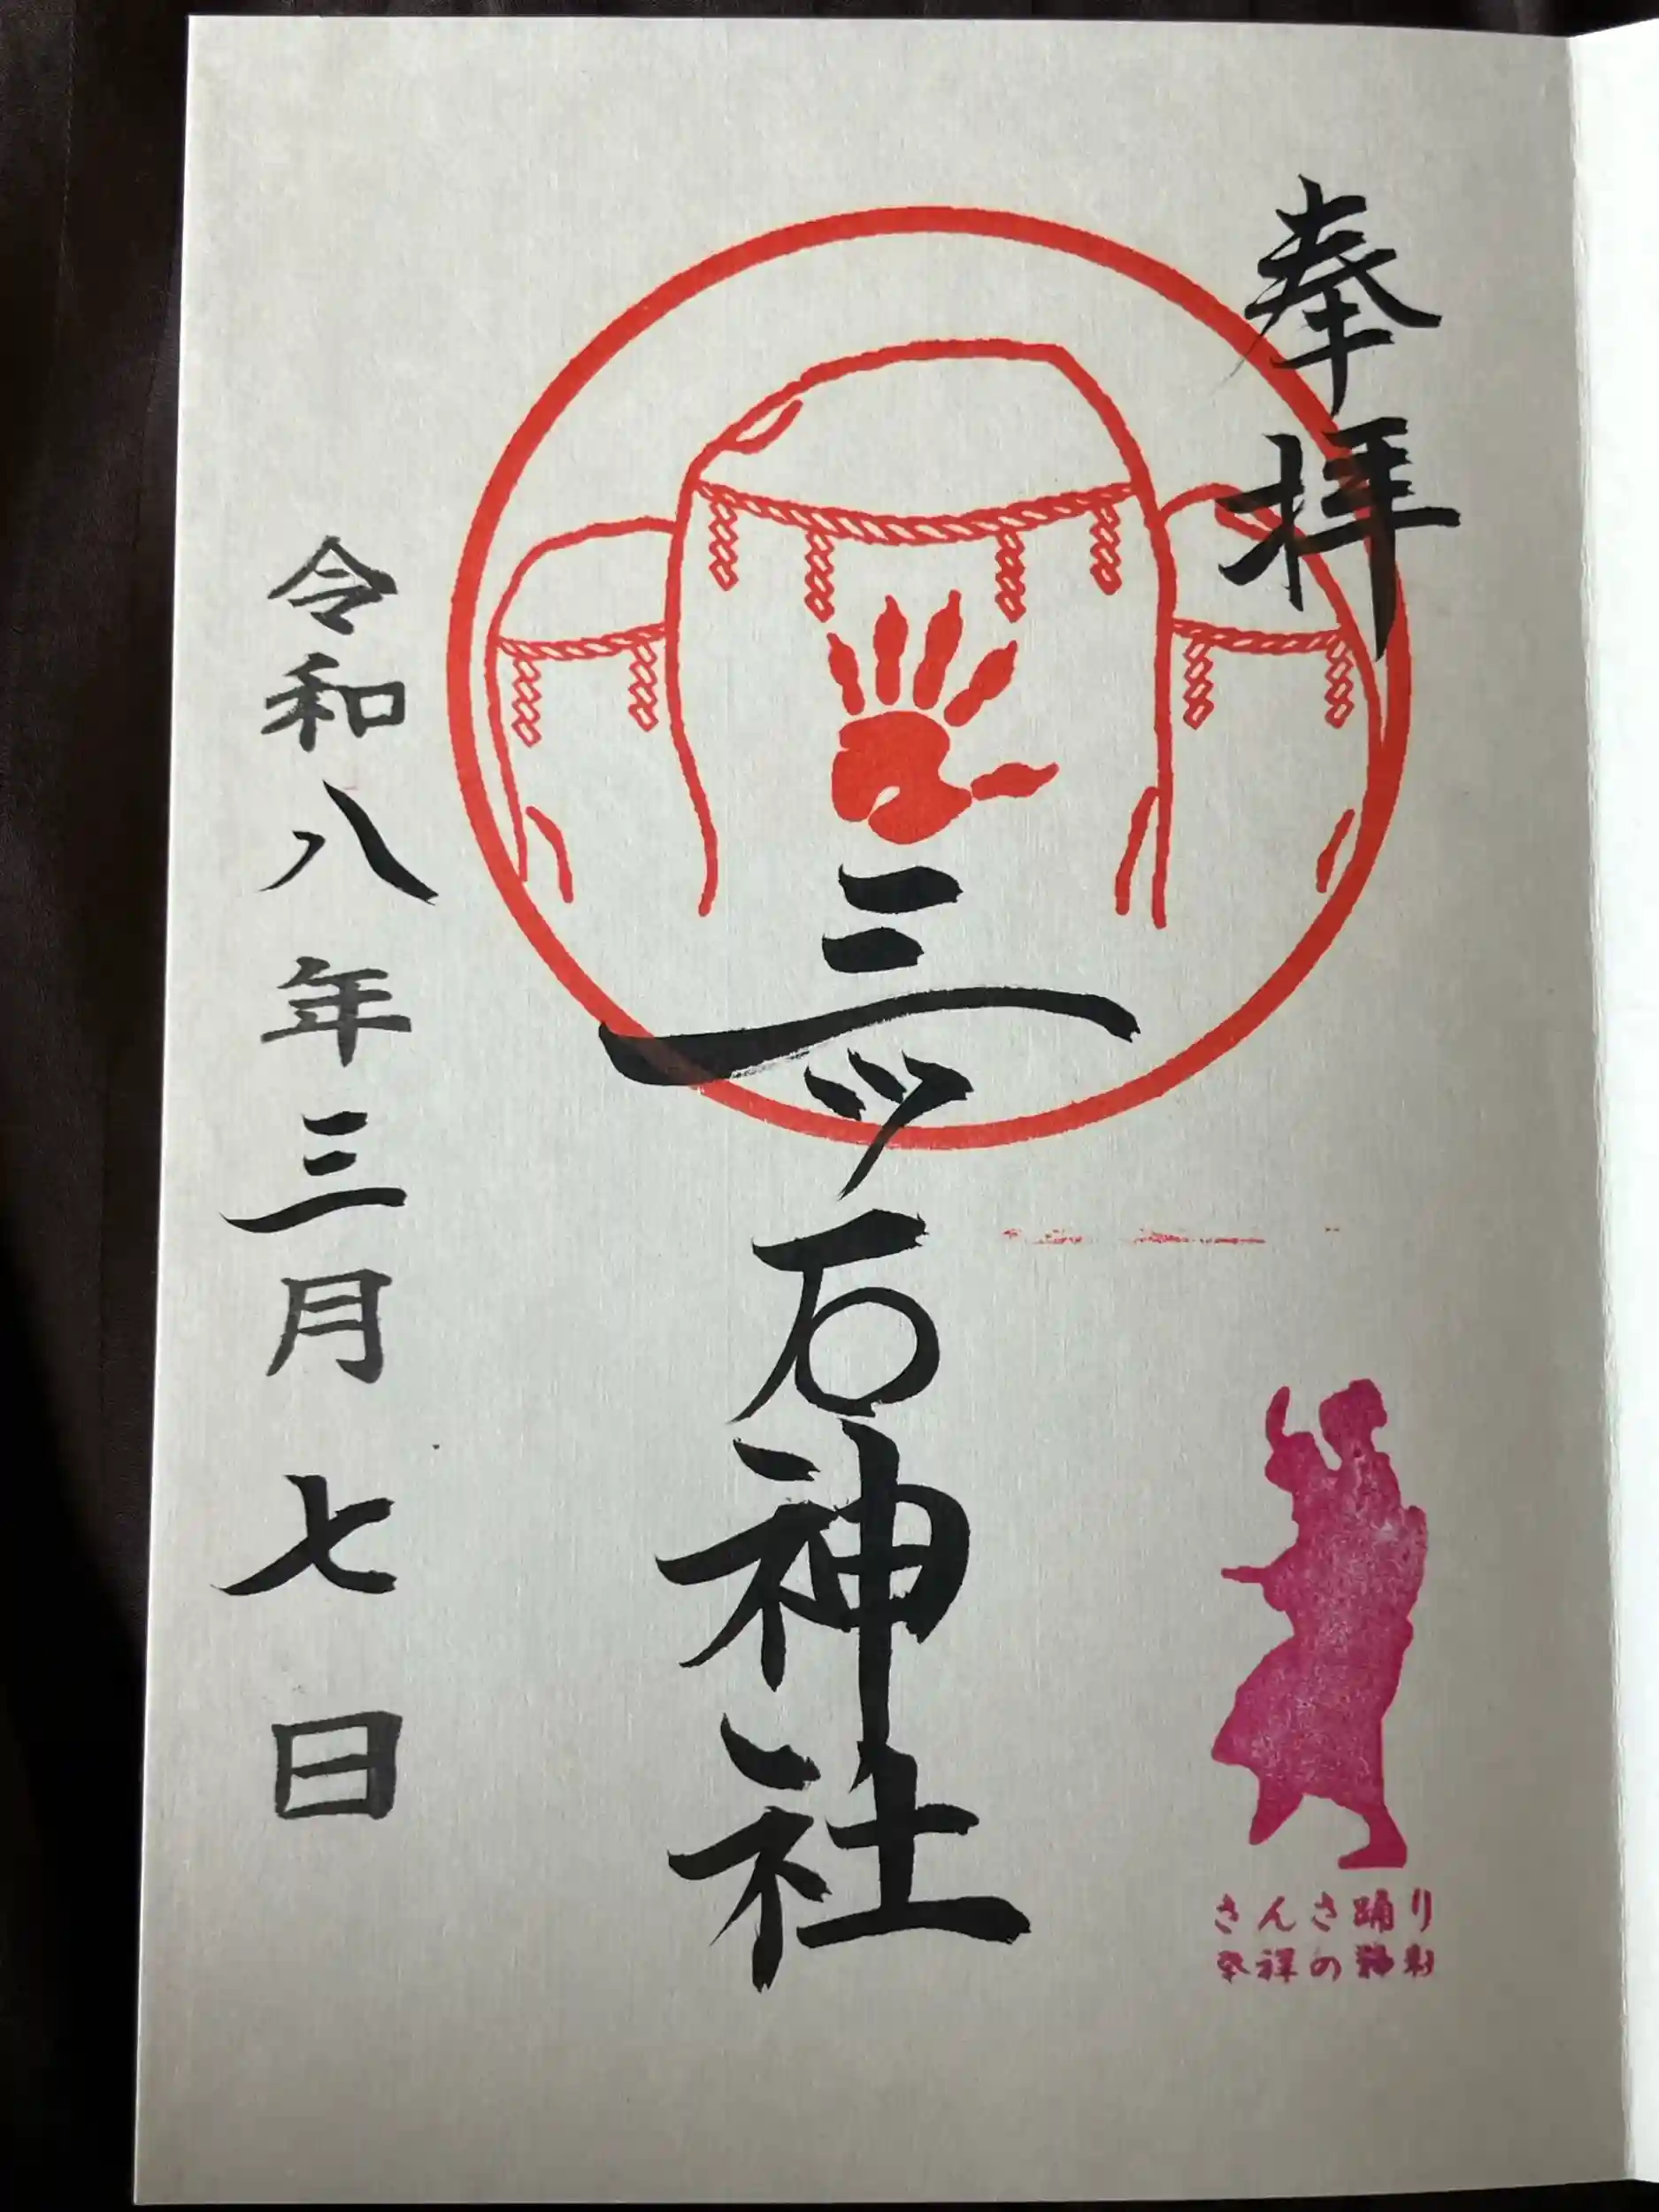 奉拝
三ッ石神社
令和八年三月七日
さんさ踊り
発祥の